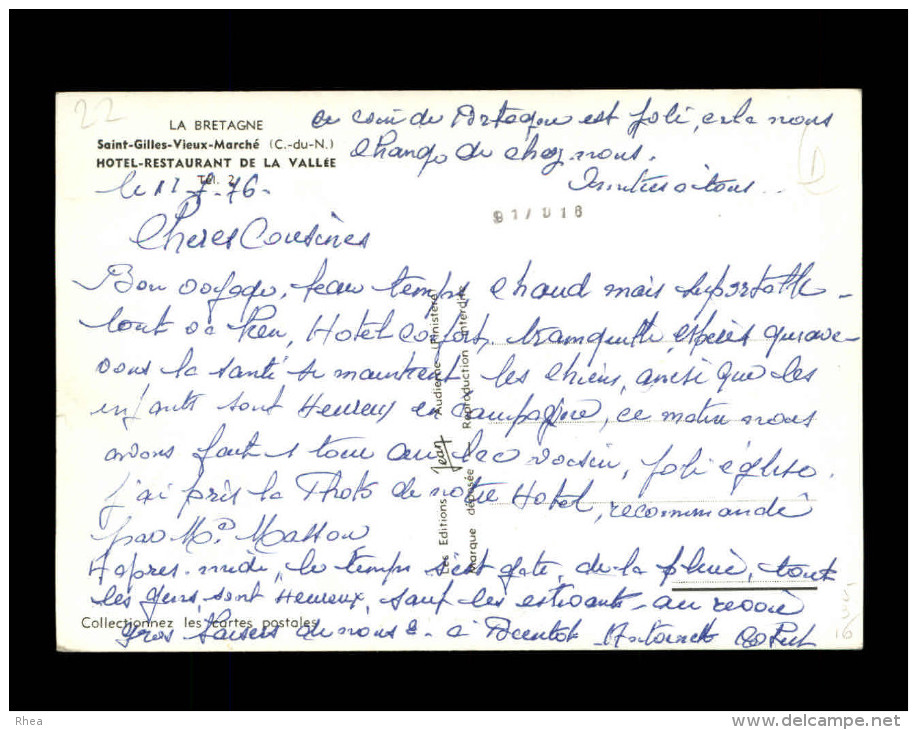 22
LA BRETAGNE
Saint-Gilles-Vieux-Marché (C.-du-N.)
HOTEL-RESTAURANT DE LA VALLÉE
Tél. 2
ce coin de Bretagne est joli, cela nous
change de chez nous.
à tous
le 7-76-
91/016
Cheres Cousines
Bon voyage, beau temps chaud mais supportable -
tout va bien, Hotel confort, tranquille, espère qu'avec
vous la santé se maintient les chiens, ainsi que les
enfants sont Heureux en campagne, ce matin nous
avons fait 1 tour au lac voisin, joli église.
j'ai pris la Photo de notre Hotel, recommandé
par Mr Masson
Après-midi, le temps s'est gaté, de la pluie, tout
les gens sont Heureux, sauf les estivants - au revoir
Gros baisers de nous 2 - à Bientot Antoinette
Les Editions Jean Audierne (Finistère)
Marque déposée - Reproduction interdite
Collectionnez les cartes postales
16
Rhea
www.delcampe.net